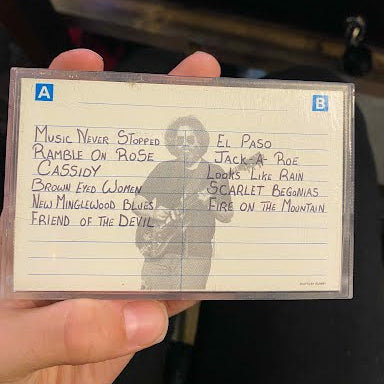 A
B
Music Never Stopped
Ramble On Rose
Cassidy
Brown Eyed Women
New Minglewood Blues
Friend of the Devil
El Paso
Jack-A-Roe
Looks Like Rain
Scarlet Begonias
Fire on the Mountain